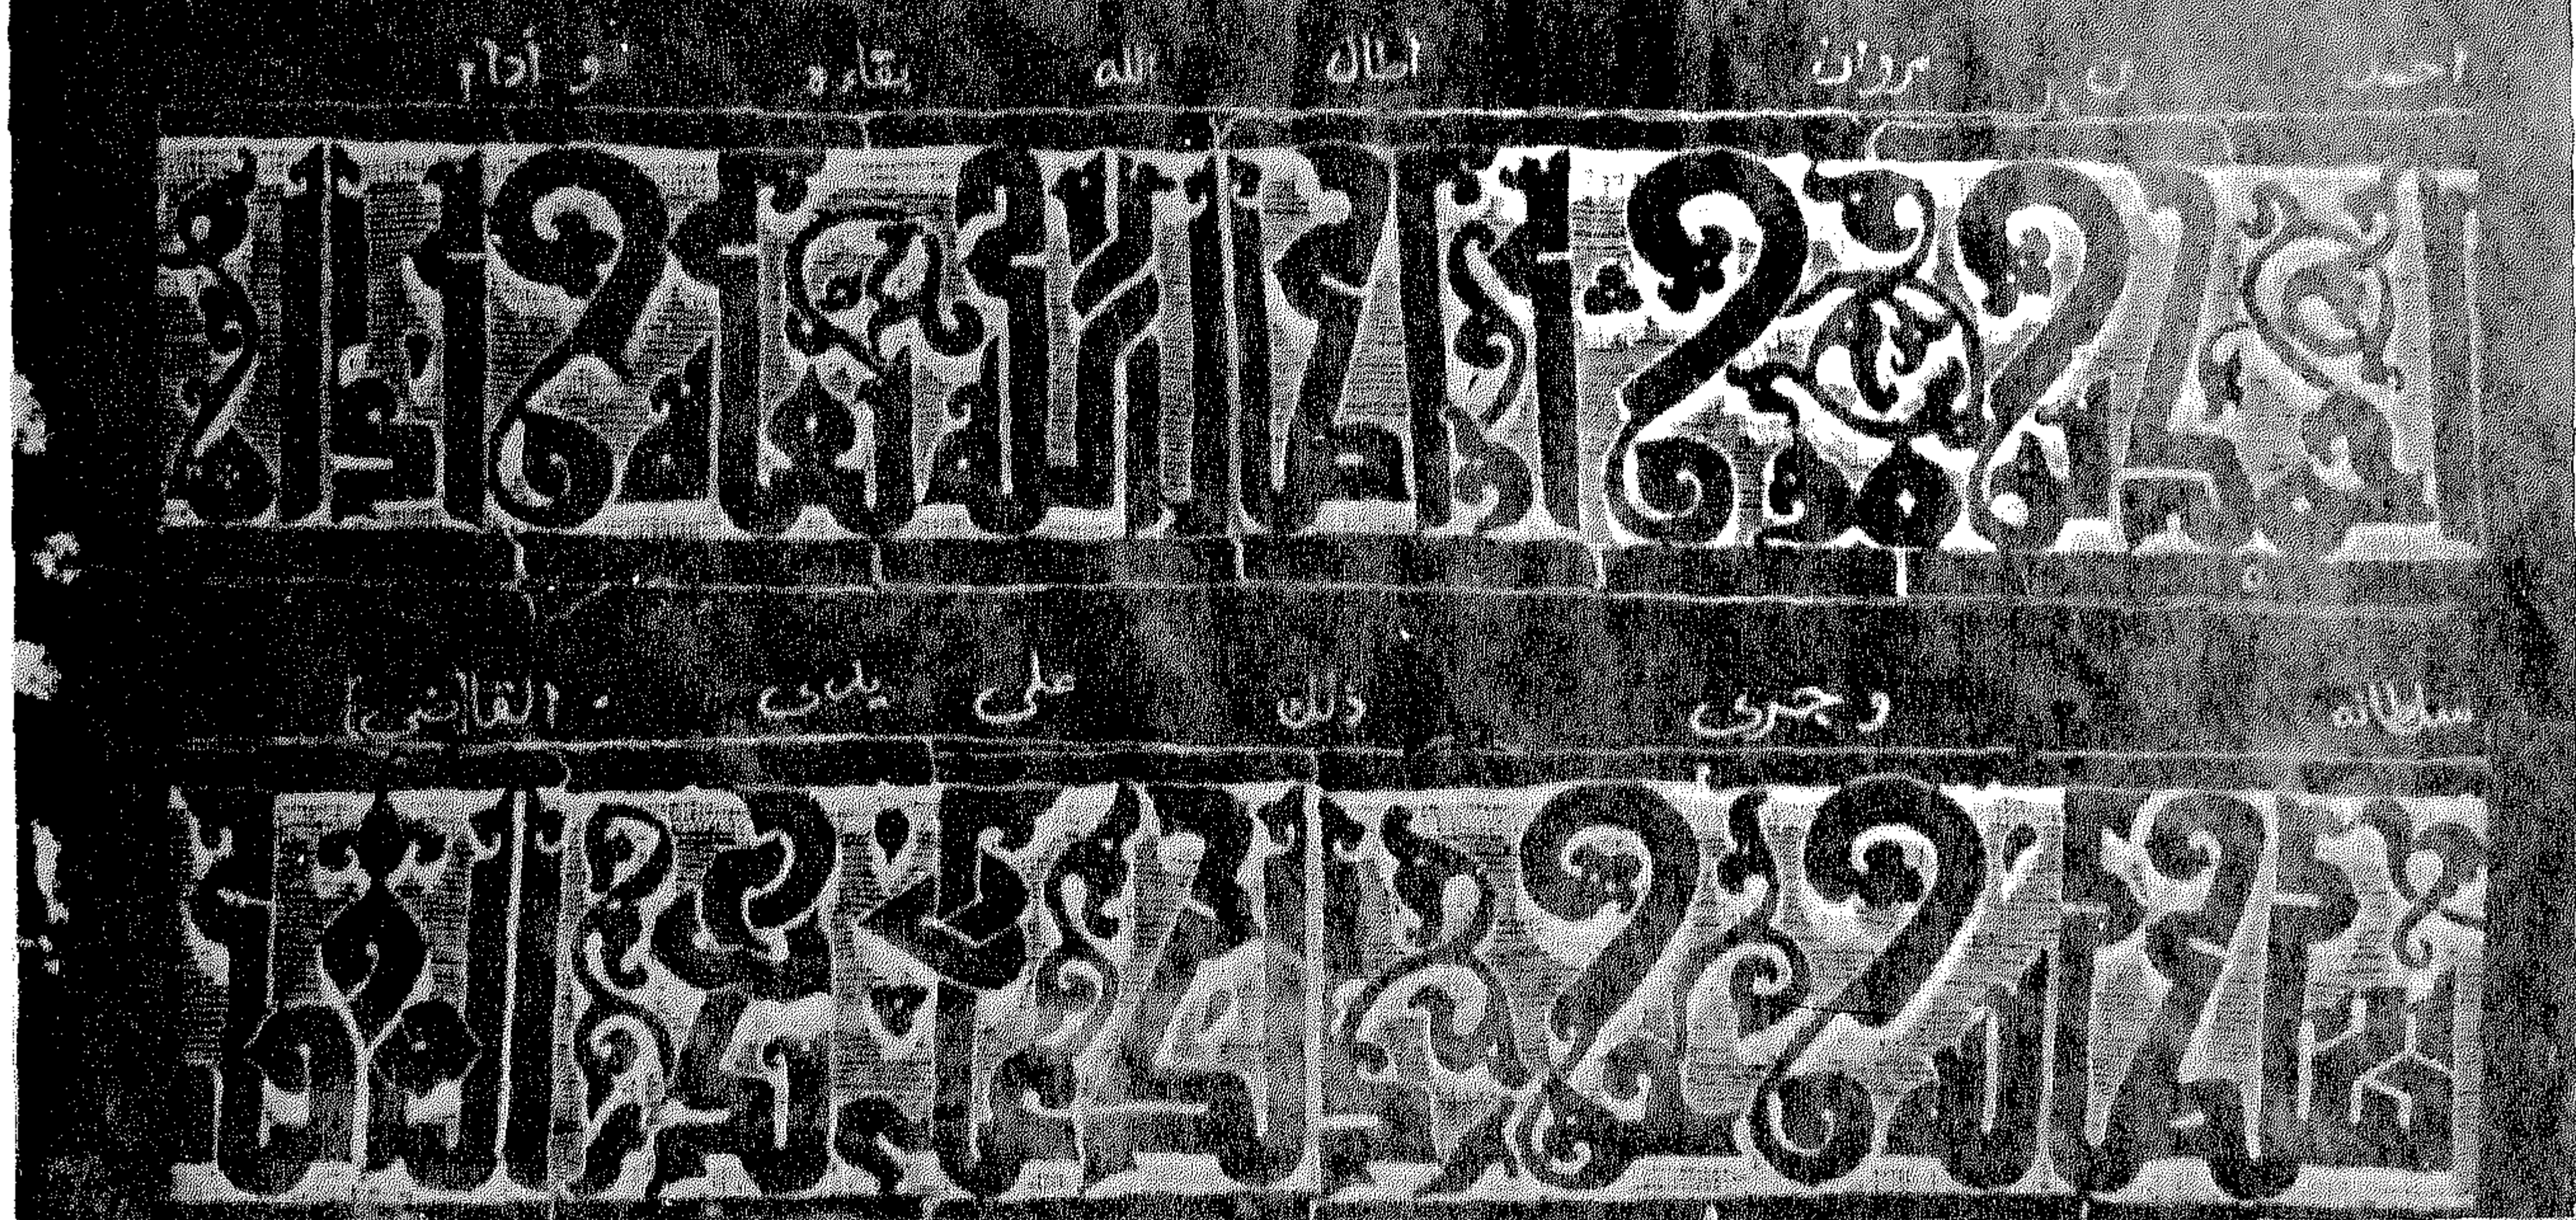 احمد بن مروان اطال الله بقاءه و أدام
سلطانه و جرى ذلك على يدى القا(ضى)